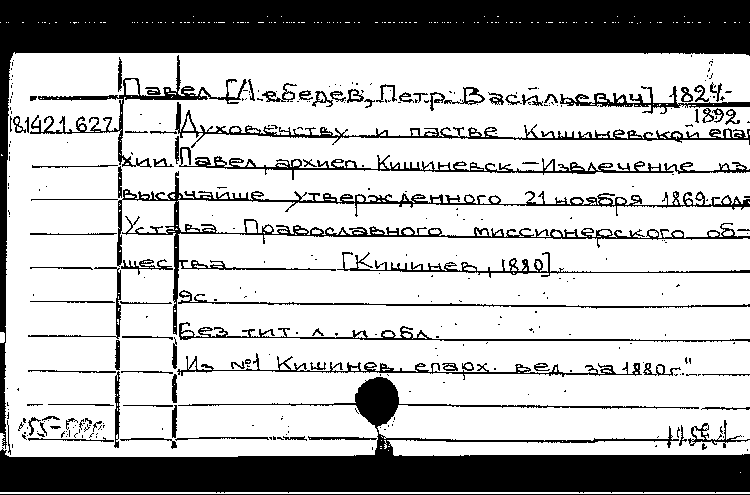 Павел [Лебедев, Петр Васильевич], 1824-
1892.
18.142.1.627. Духовенству и пастве Кишиневской епар
хии. Павел, архиеп. Кишиневск. - Извлечение из
высочайше утвержденного 21 ноября 1869 года
Устава Православного миссионерского об-
щества [Кишинев, 1880].
9с.
Без тит. л. и обл.
"Из №1 Кишинев. епарх. вед. за 1880 г."